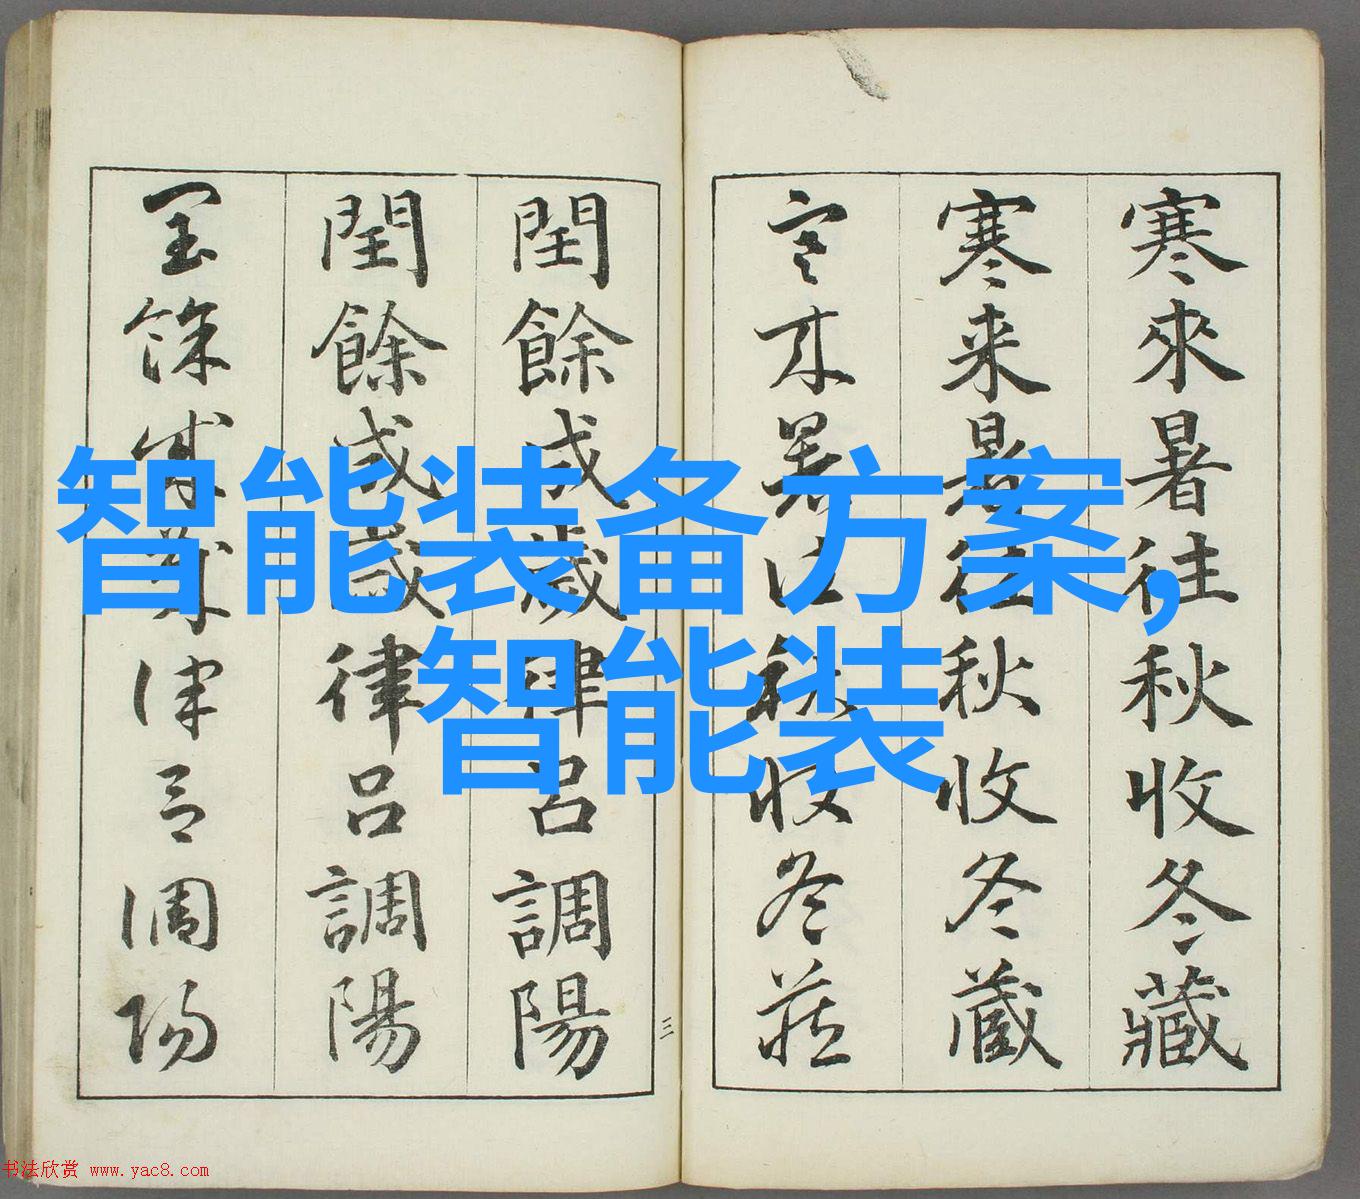 寒來暑往秋收冬藏
寒来暑往秋收冬蔵
寒来暑往秋收冬藏
三
閏餘成歲律呂調陽
閏餘成歳律呂調陽
閏餘成歲律呂調陽
智能装备方案,
智能装
书法欣赏 www.yac8.com